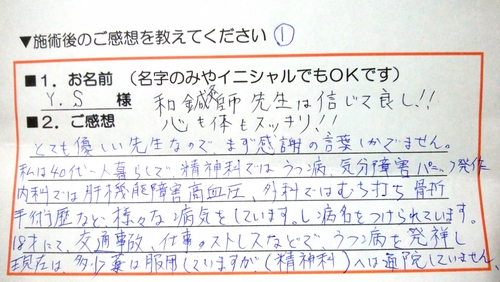 ▼施術後のご感想を教えてください ①
■1．お名前 （名字のみやイニシャルでもOKです）
Y.S 様 和鍼灸師 先生は信じて良し!!
■2．ご感想 心も体もスッキリ!!
とても優しい先生なので、まず感謝の言葉しかでません。
私は40代一人暮らしで、精神科ではうつ病、気分障害 パニック発作
内科では肝機能障害高血圧、外科ではむち打ち 骨折
手術歴など、様々な病気をしています。し病名をつけられています。
18才にて、交通事故、仕事のストレスなどで、うつ病を発祥し
現在は、多少薬は服用していますが、(精神科)へは通院していません、